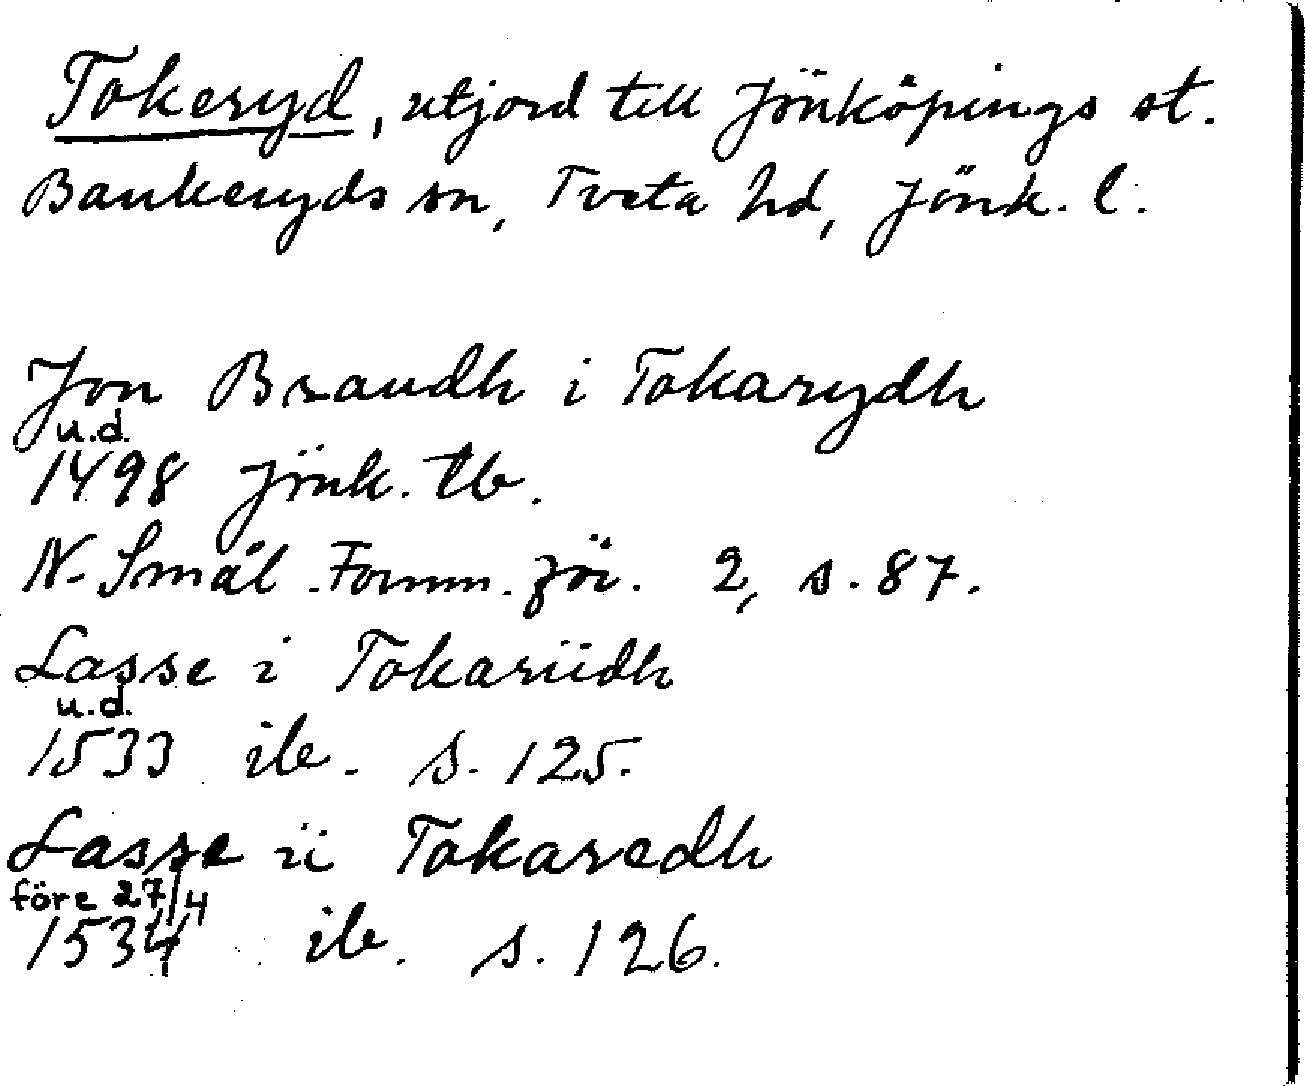 Tokeryd, utjord till Jönköpings st.
Bankeryds sn, Tveta hd, Jönk. l.
Jon Brandh i Tokarydh
u.d.
1498 Jönk. tb.
N. Smål. Fornm. för. 2, s. 87.
Lasse i Tokariidh
u.d.
1533 ib. s. 125.
Lasse ii Tokaredh
före 27/4
1534 ib. s. 126.